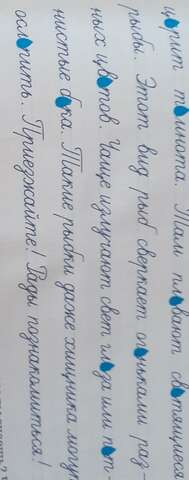 ц●рит т●мнота. Там пл●вают св●тящиеся
рыбы. Этот вид рыб сверкает ог●ньками раз-
ных цв●тов. Чаще излучают свет гл●за или п●т-
нистые б●ка. Такие рыбки даже хищника могу
осл●пить. Приезжайте! Рады познакомиться!